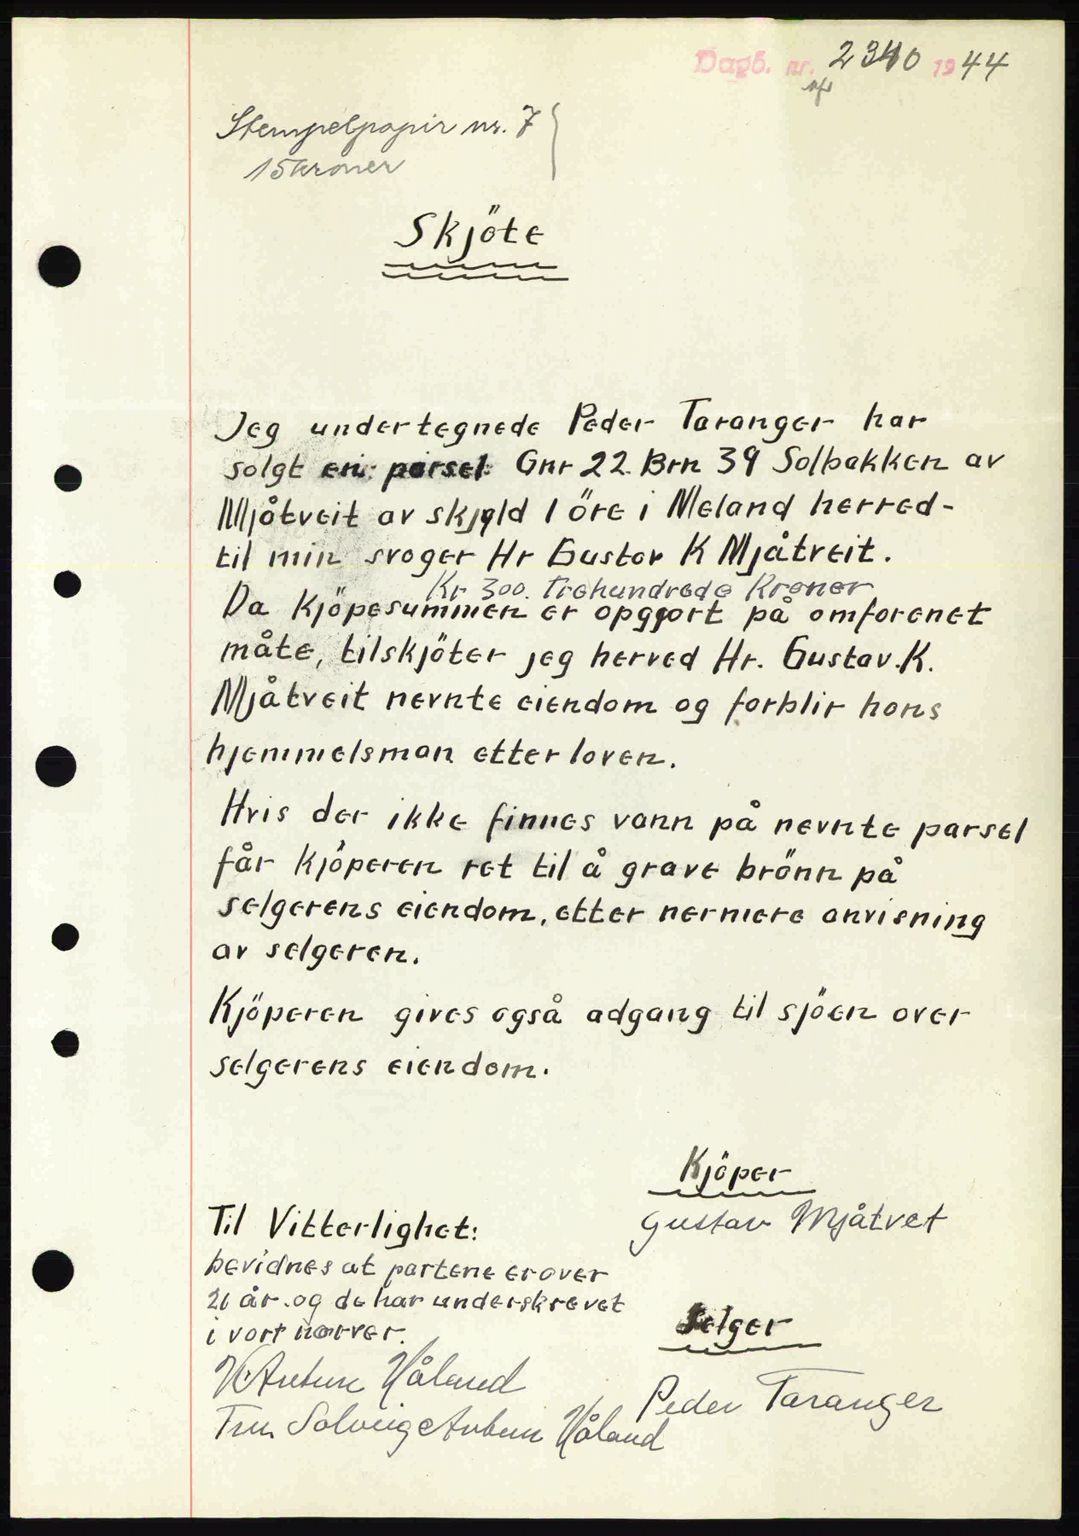 Dagb. nr. 2340 1944
Stempelpapir nr. 7
15 kroner
Skjöte
Jeg undertegnede Peder Taranger har
solgt en parsel Gnr 22 Brn 39 Solbakken av
Mjåtveit av skjyld 1 öre i Meland herred-
til min svoger Hr Gustav K Mjåtveit.
Kr 300. Trehundrede Kroner
Da Kjöpesummen er opgjort på omforenet
måte, tilskjöter jeg herved Hr. Gustav. K.
Mjåtveit nevnte eiendom og forblir hans
hjemmelsman etter loven.
Hvis der ikke finnes vann på nevnte parsel
får kjöperen ret til å grave brönn på
selgerens eiendom, etter nermere anvisning
av selgeren.
Kjöperen gives også adgang til sjöen over
selgerens eiendom.
Kjöper
Gustav Mjåtvet
Til Vitterlighet:
bevidnes at partene er over
21 år. og de har underskrevet
i vort nærver.
Selger
Anton Håland
Peder Taranger
Fru Solveig Anton Håland